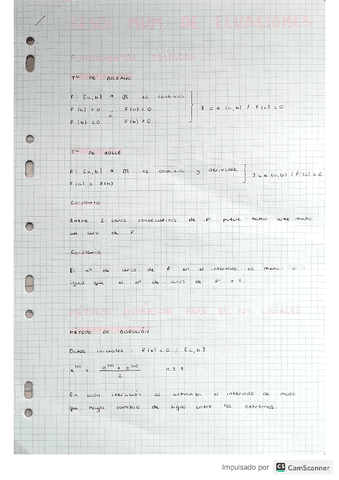 DE ECUACIONES
FUNDAMENTOS
Tᵐᵃ DE BOLZANO
F: [a,b] → ℝ es continua
F(a) > 0 ; F(a) < 0
F(b) < 0 F(b) > 0
∃ c ∈ (a,b) / F(c) = 0
Tᵐᵃ DE ROLLE
F: [a,b] → ℝ es continua y derivable
F(a) = F(b)
∃ c ∈ (a,b) / F'(c) = 0
Corolario
Entre 2 ceros consecutivos de F' puede haber como mucho
un cero de F
Corolario
El nº de ceros de F en el intervalo es menor o
igual que el nº de ceros de F' + 1
MÉTODOS NUMÉRICOS PARA EC NO LINEALES
MÉTODO DE BISECCIÓN
Datos iniciales: F(x) = 0 ; [a,b]
x⁽ⁿ⁾ = a⁽ⁿ⁾ + b⁽ⁿ⁾ / 2 n ≥ 1
En cada iteración se actualiza el intervalo de modo
que haya cambio de signo entre los extremos.
Impulsado por CS CamScanner